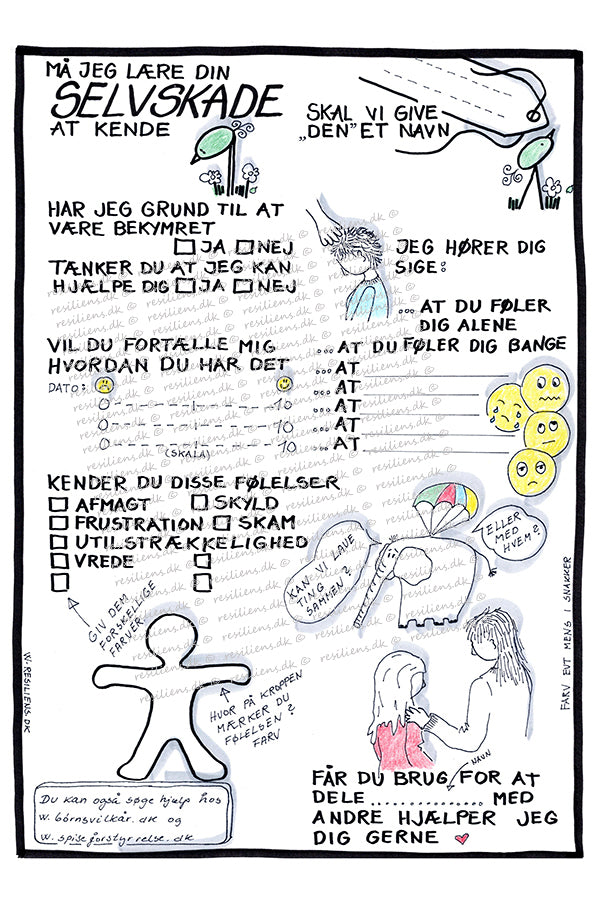 MÅ JEG LÆRE DIN
SELVSKADE
AT KENDE
SKAL VI GIVE
„DEN” ET NAVN
HAR JEG GRUND TIL AT
VÆRE BEKYMRET
JA NEJ
TÆNKER DU AT JEG KAN
HJÆLPE DIG JA NEJ
JEG HØRER DIG
SIGE:
... AT DU FØLER
DIG ALENE
... AT DU FØLER DIG BANGE
... AT
... AT
... AT
... AT
... AT
VIL DU FORTÆLLE MIG
HVORDAN DU HAR DET
DATO:
0 1 10
0 1 10
0 1 10
(SKALA)
KENDER DU DISSE FØLELSER
AFMAGT SKYLD
FRUSTRATION SKAM
UTILSTRÆKKELIGHED
VREDE
GIV DEM
FORSKELLIGE
FARVER
KAN VI LAVE
TING
SAMMEN?
ELLER
MED
HVEM?
HVOR PÅ KROPPEN
MÆRKER DU
FØLELSEN?
FARV
FARV EVT MENS I SNAKKER
W. RESILIENS.DK
Du kan også søge hjælp hos
w. börnsvilkår.dk og
w. spiseforstyrrelse.dk
NAVN
FÅR DU BRUG FOR AT
DELE .................. MED
ANDRE HJÆLPER JEG
DIG GERNE
resiliens.dk ©